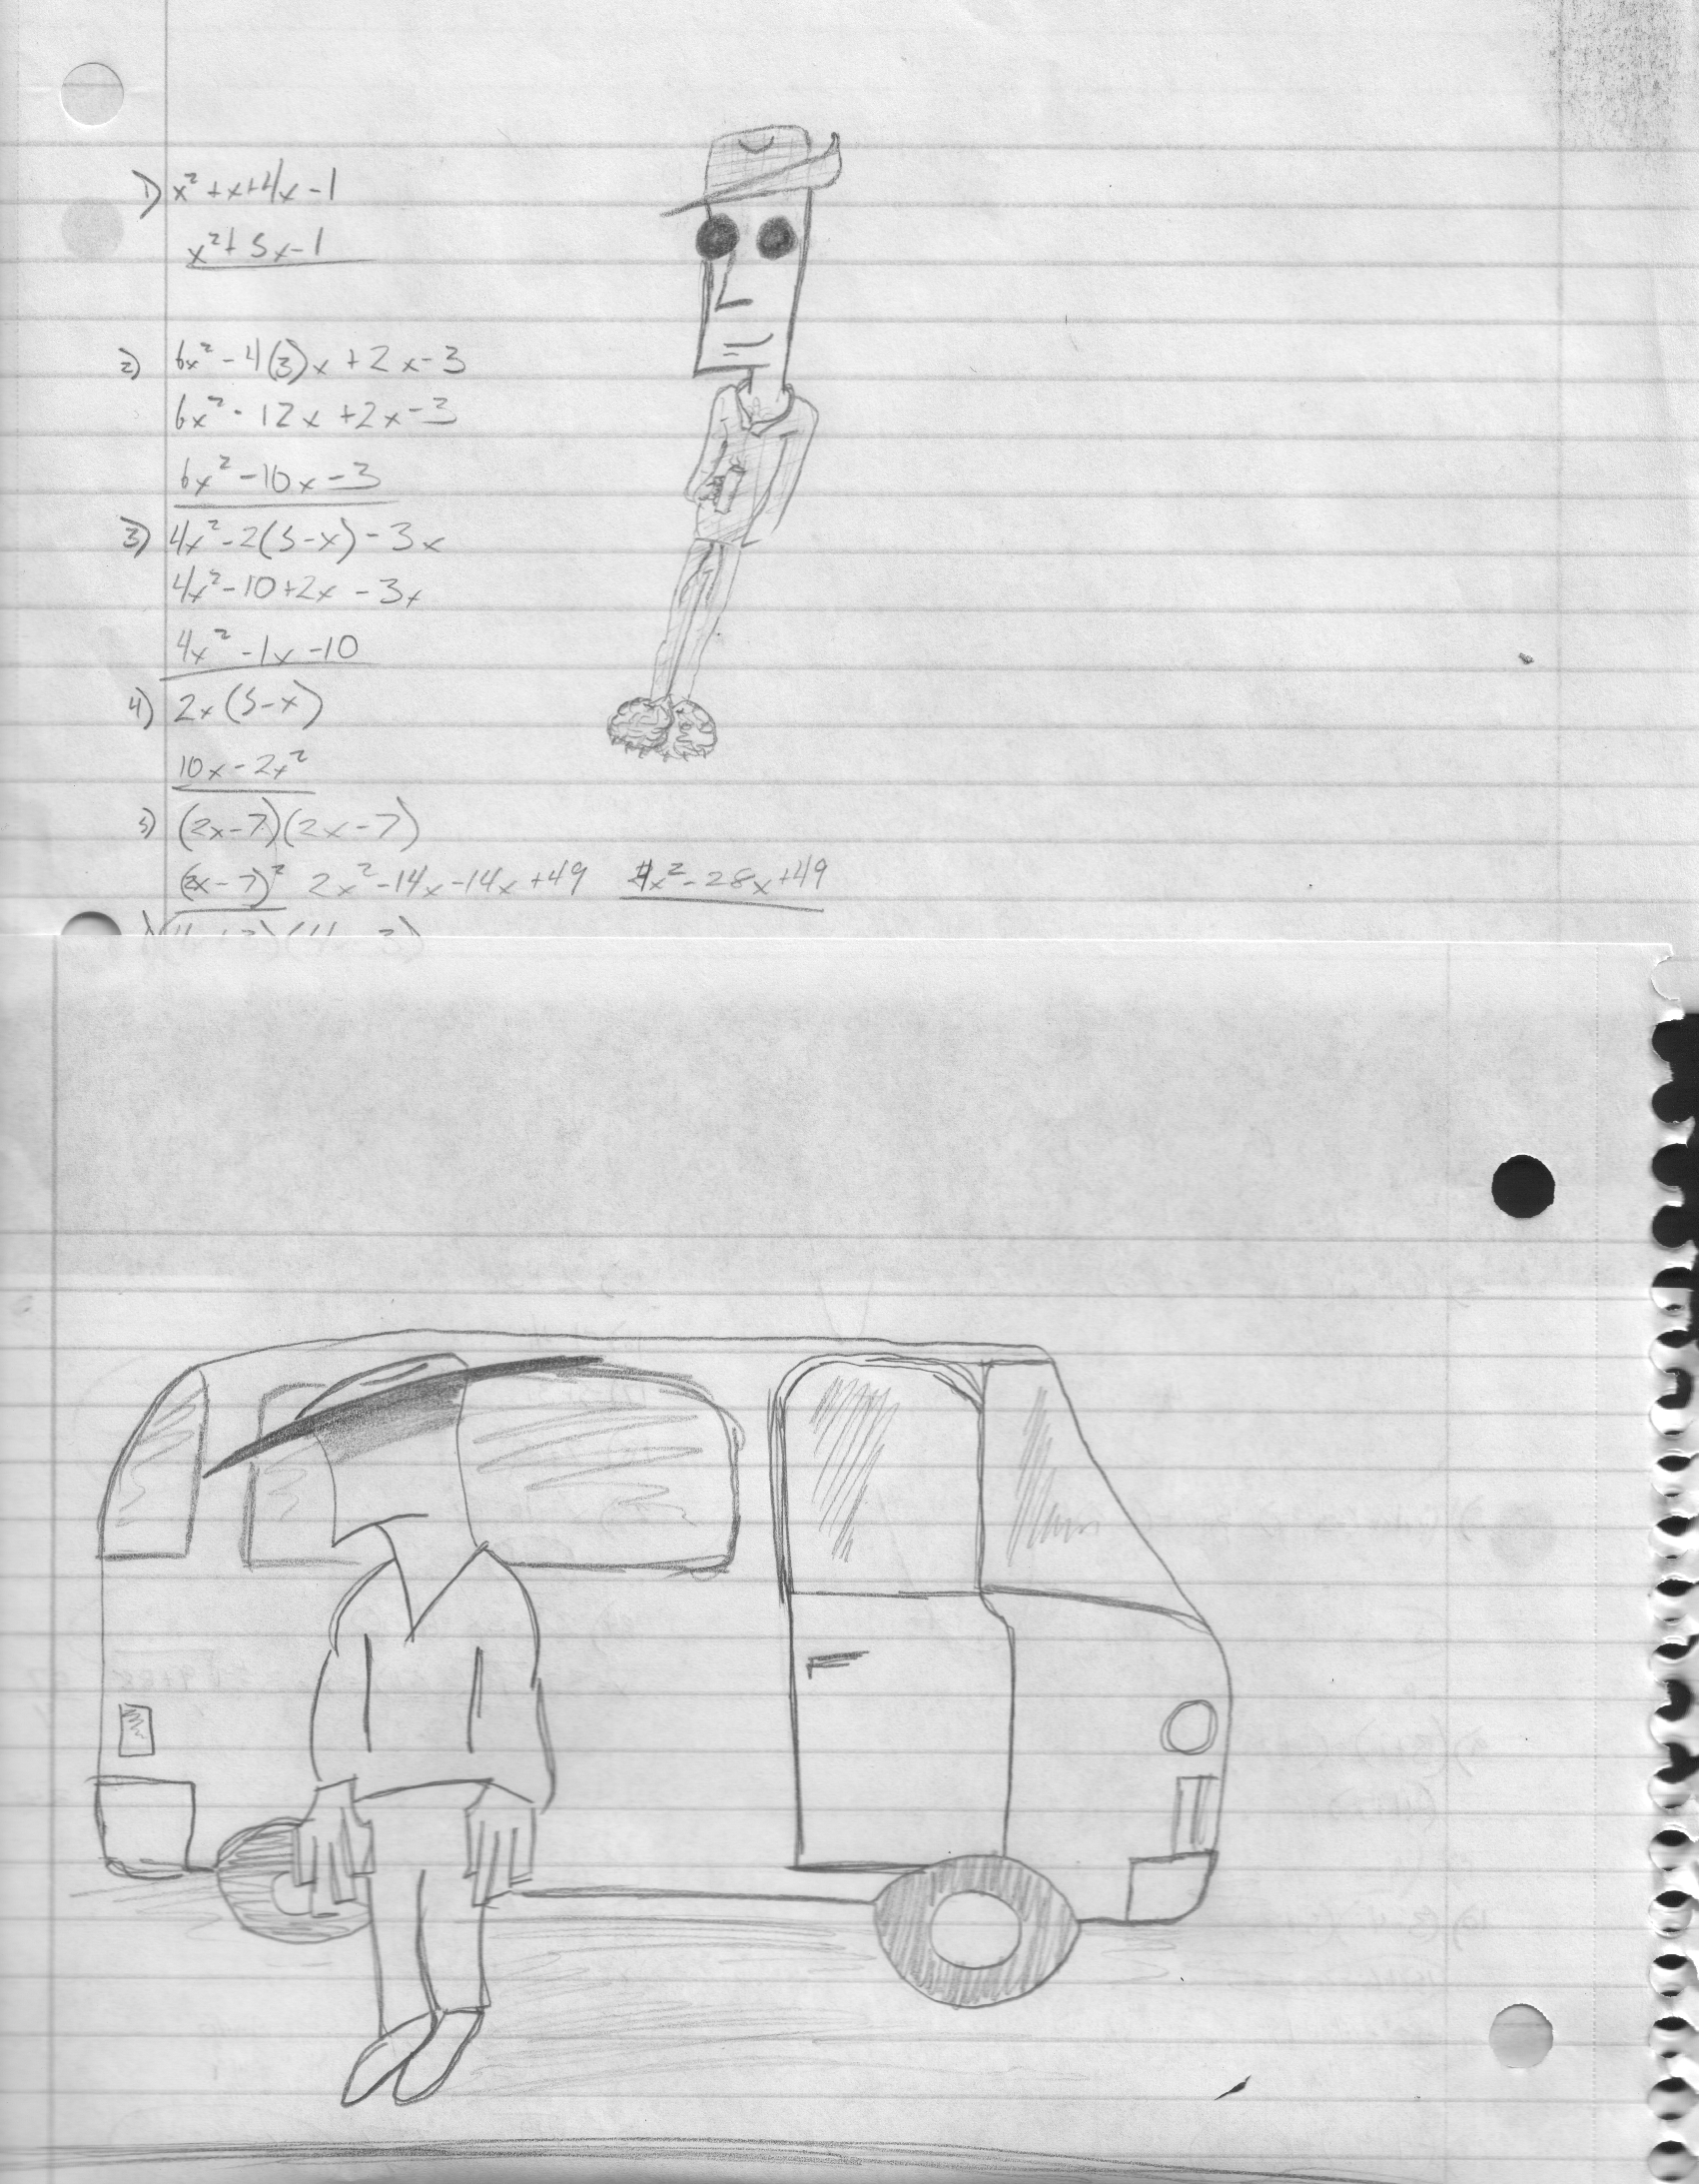 1) x² + x + 4x - 1
x² + 5x - 1
2) 6x² - 4(3)x + 2x - 3
6x² - 12x + 2x - 3
6x² - 10x - 3
3) 4x² - 2(5-x) - 3x
4x² - 10 + 2x - 3x
4x² - 1x - 10
4) 2x(5-x)
10x - 2x²
5) (2x-7)(2x-7)
(2x-7)² 2x² - 14x - 14x + 49 4x² - 28x + 49